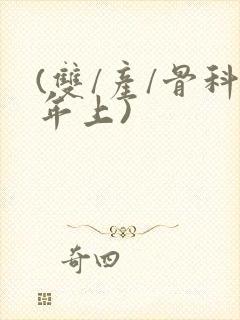 (雙/產/骨科
年上)
奇四